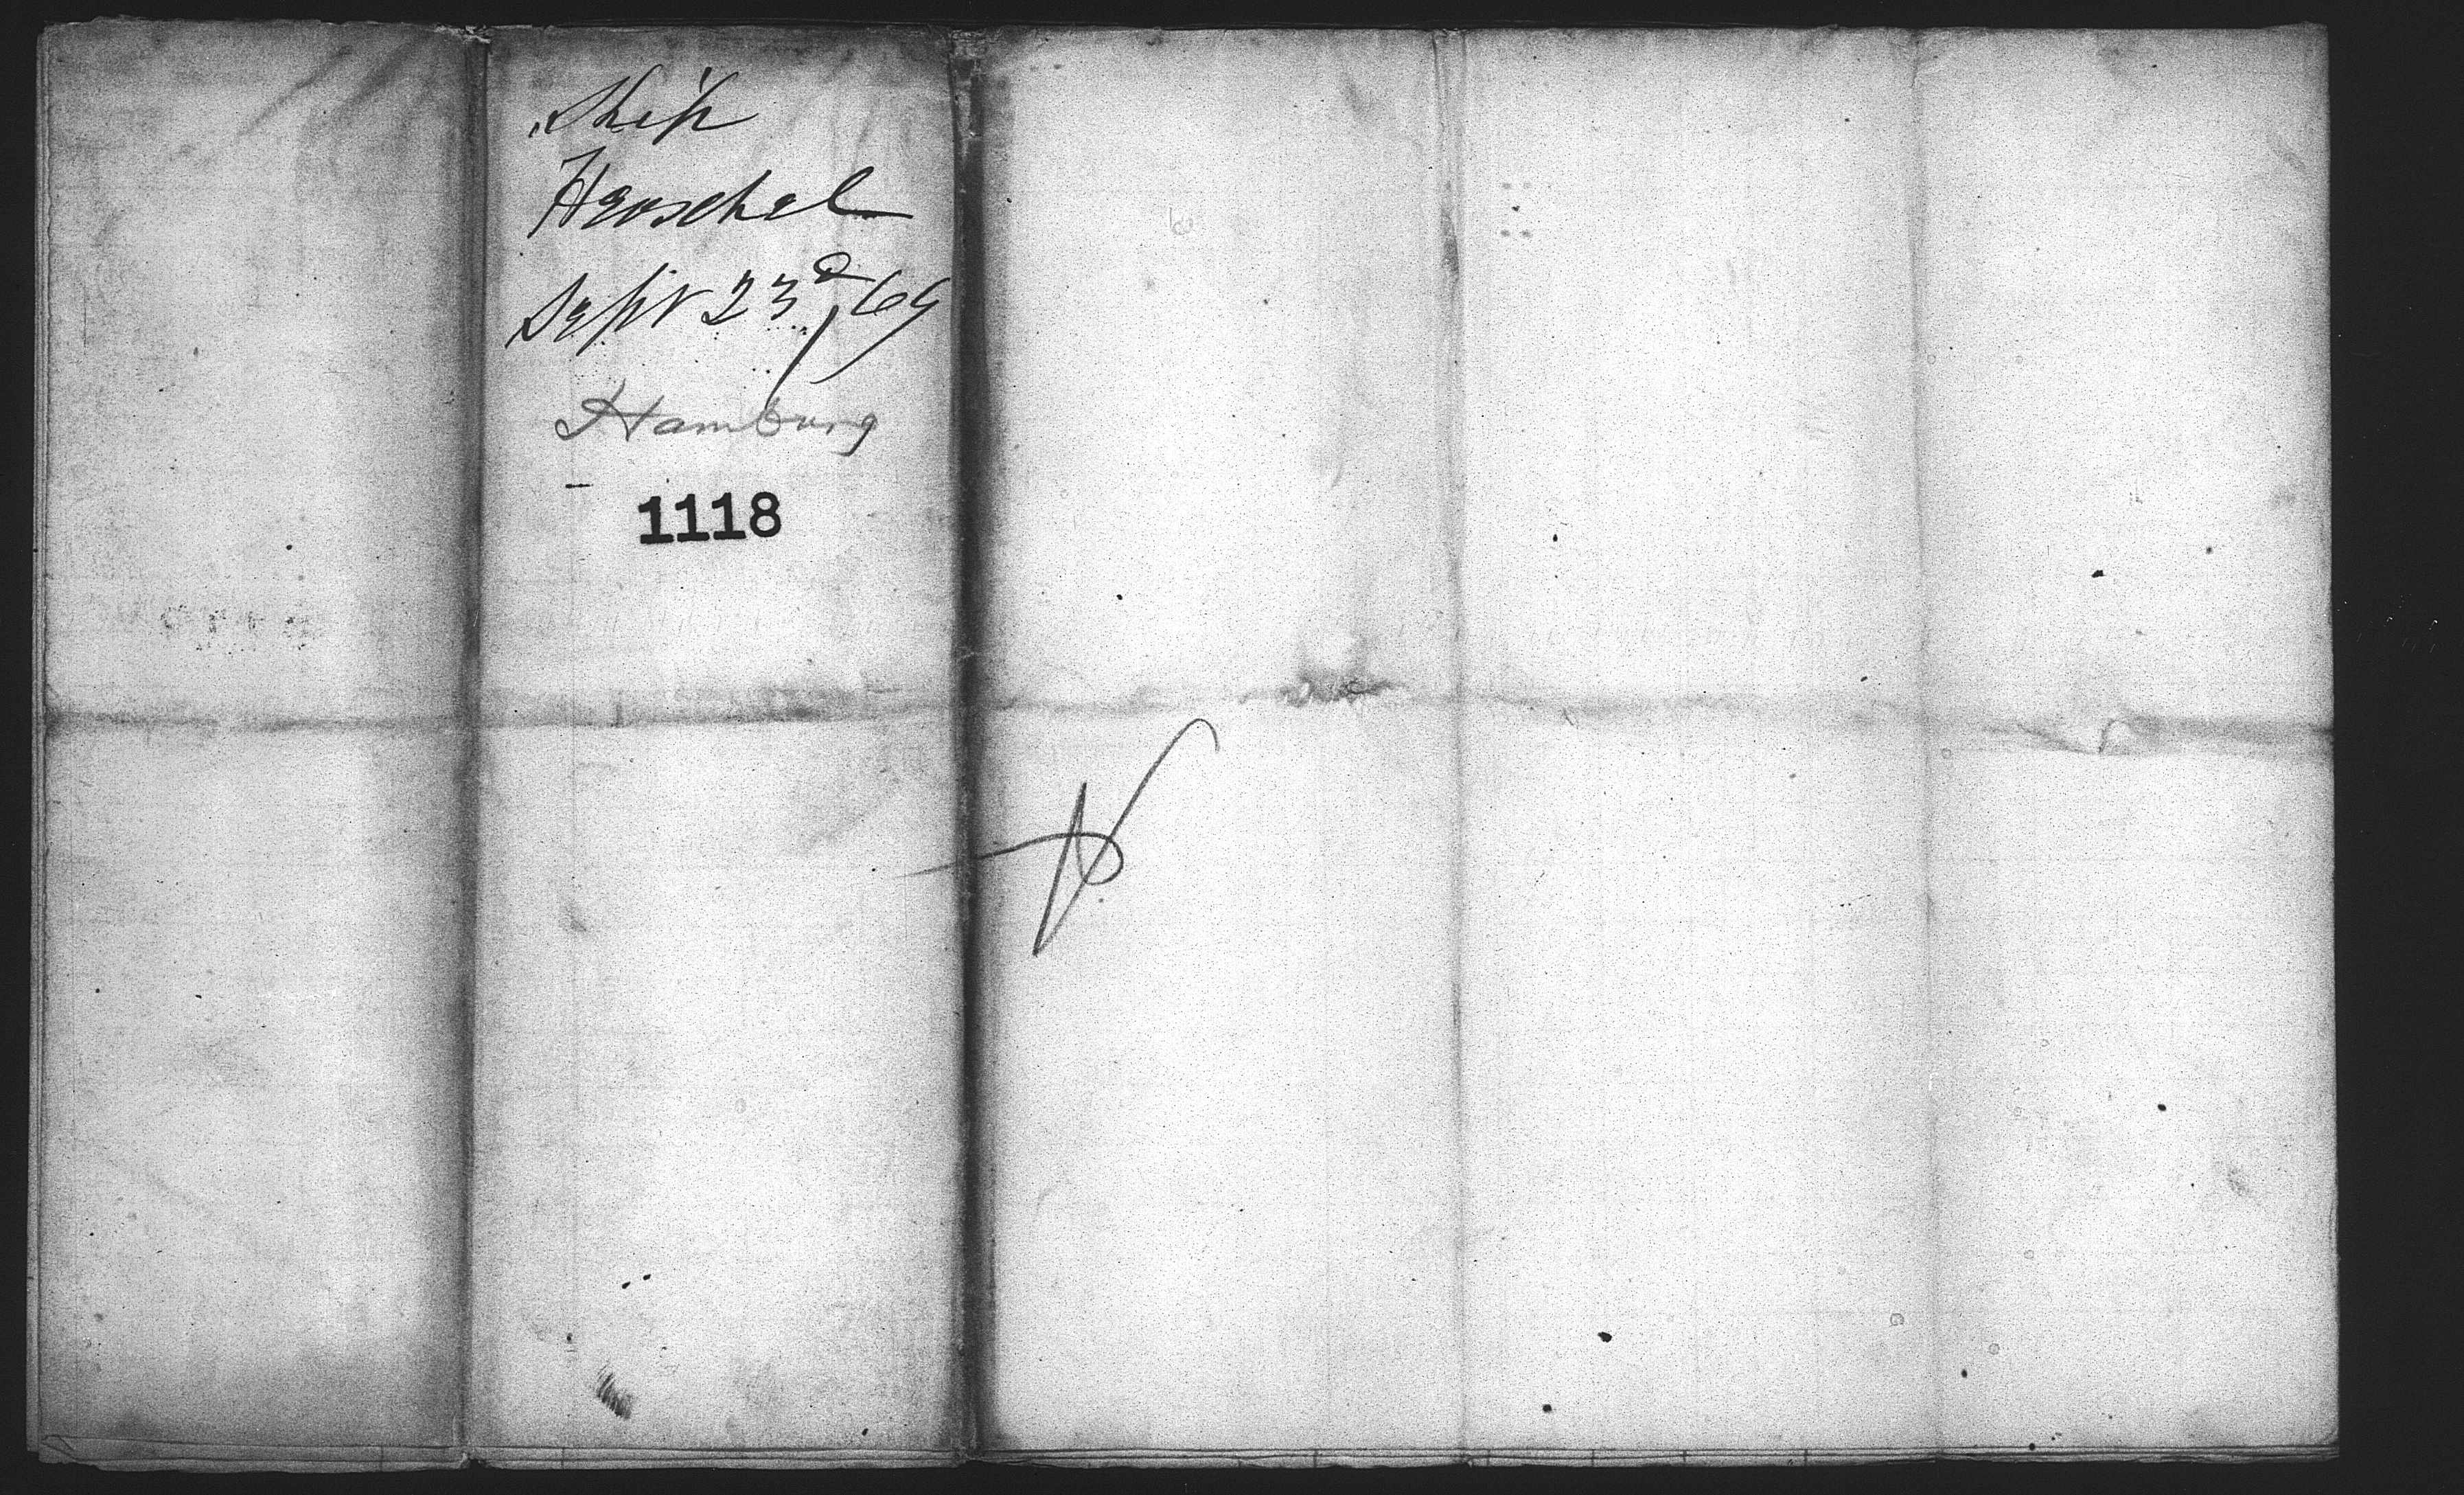 Ship
Herschel
Sept 23d/69
Hamburg
1118